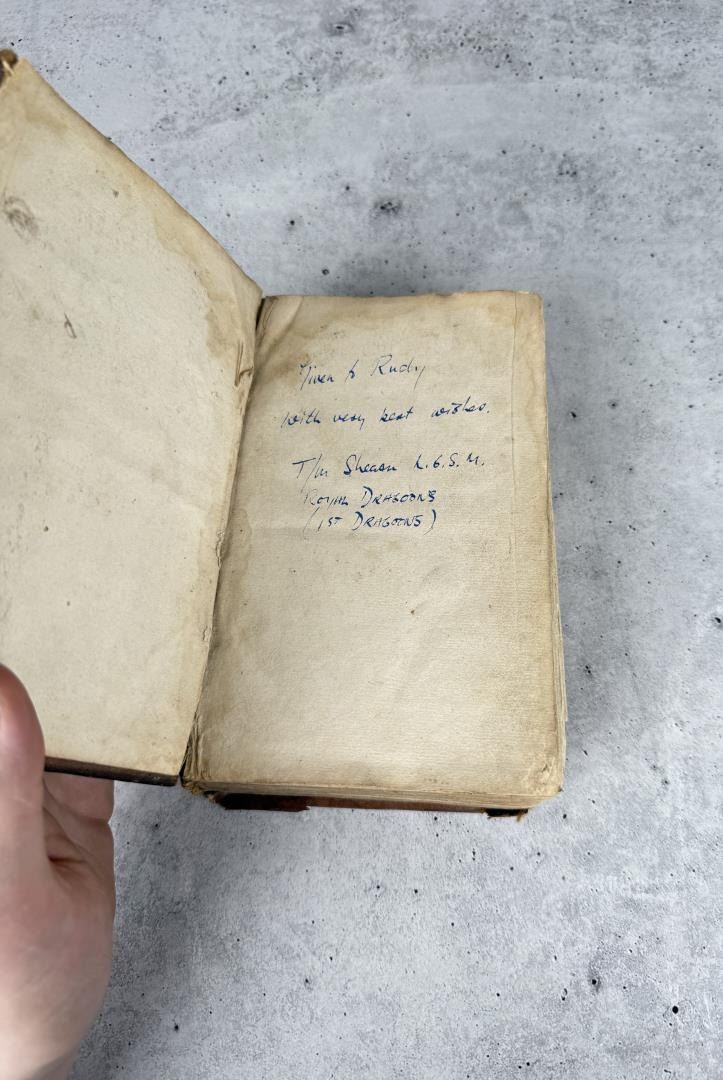 Given to Rudy
With very best wishes.
T/M
ROYAL DRAGOONS
(1ST DRAGOONS)